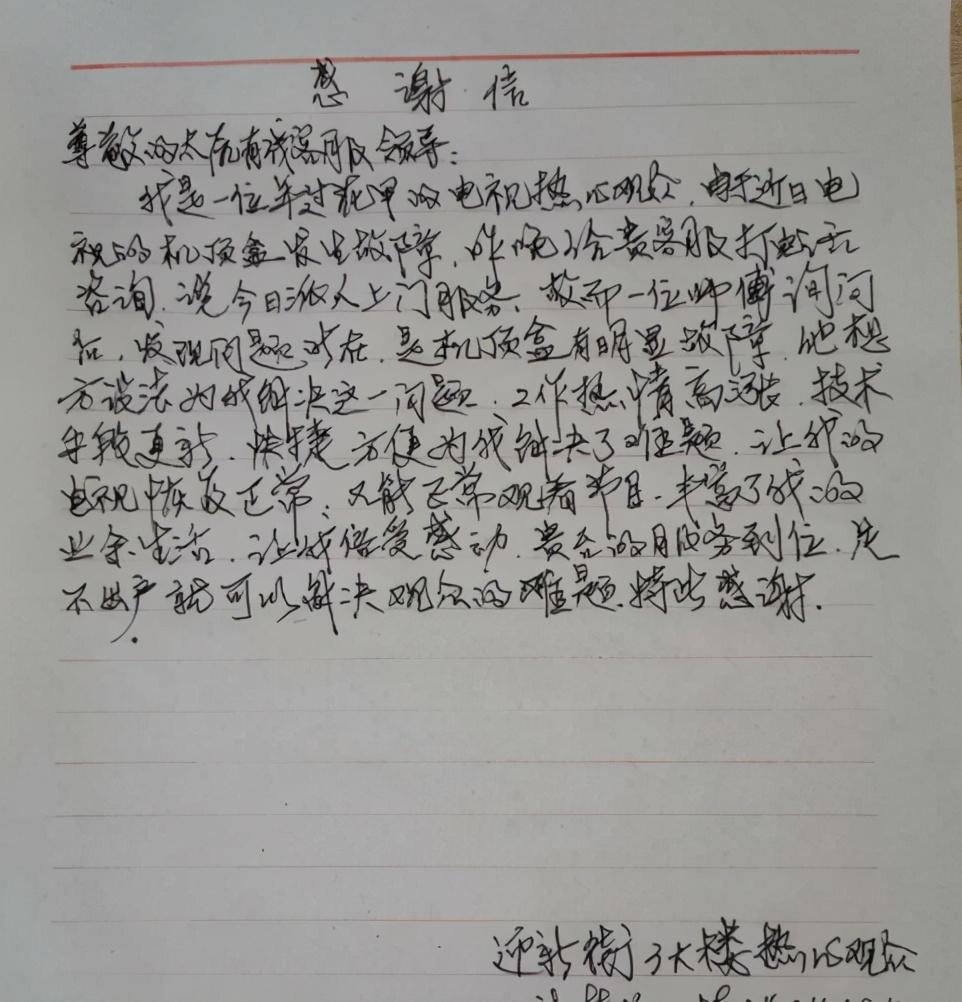 感谢信
尊敬的太原有线客服领导:
我是一位年过花甲的电视热心观众,由于近日电
视的机顶盒发生故障,昨晚给贵客服打电话
咨询,说今日派人上门服务,故而一位师傅询问
后,发现问题所在,是机顶盒有明显故障,他想
方设法为我解决这一问题,工作热情高涨,技术
手段更新,快捷方便为我解决了难题,让我的
电视恢复正常,又能正常观看节目,丰富了我的
业余生活,让我倍受感动,贵台的服务到位,足
不出户就可以解决观众的难题,特此感谢.
迎新街 3大楼热心观众